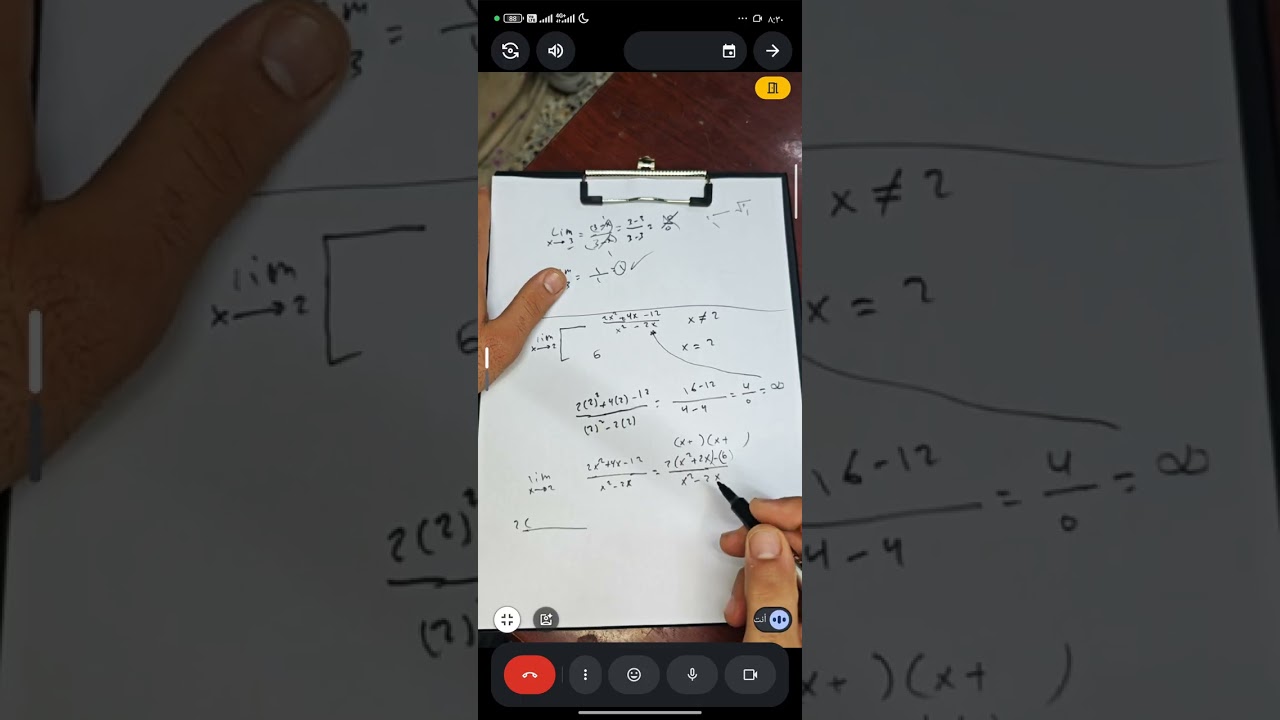 88 4G+ ٨:٢٠
lim x→3 = (3-x) = 3-3 / 3-3 =
= 1/1 = 1 ✓
lim x→2 [ 2x²+4x-12 / x²-2x x≠2
6 x=2
2(2)²+4(2)-12 / (2)²-2(2) = 16-12 / 4-4 = 4/0 = ∞
(x+ )(x+ )
lim x→2 2x²+4x-12 / x²-2x = 2(x²+2x)-(6) / x²-2x
2(
أنت